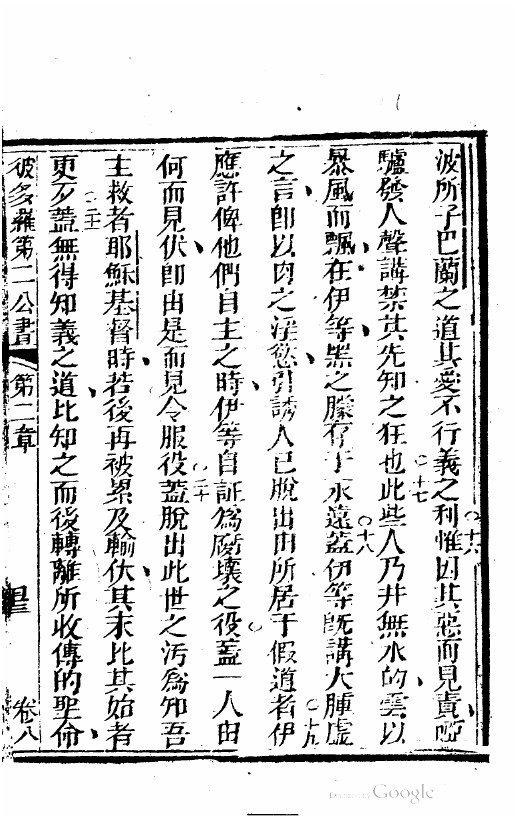 波所子巴蘭之道其愛不行義之利惟因其惡而見責啞
十六
驢發人聲講禁其先知之狂也此些人乃井無水的雲以
十七
暴風而飄在伊等黑之朦存于永遠蓋伊等旣講大腫虛
十八
之言卽以肉之淫慾引誘人已脫出由所居于假道者伊
十九
應許俾他們自主之時伊等自証爲敝壞之役蓋一人由
何而見伏卽由是而見令服役蓋脫出此世之污爲知吾
二十
主救者耶穌基督時若後再被累及輸伏其末比其始者
更歹蓋無得知義之道比知之而後轉離所收傳的聖命
二十一
彼多羅第二公書 第二章 卷八
Digitized by Google